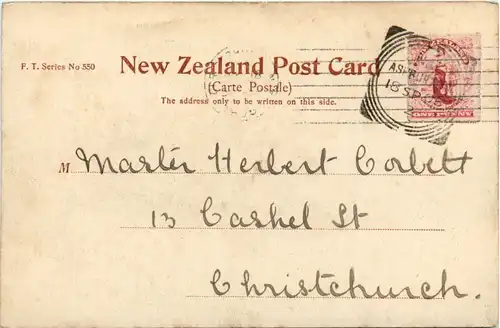 F. T. Series No 550
New Zealand Post Card
(Carte Postale)
The address only to be written on this side.
M Master Herbert Corbett
13 Cashel St
Christchurch.
18 SP
ONE PENNY